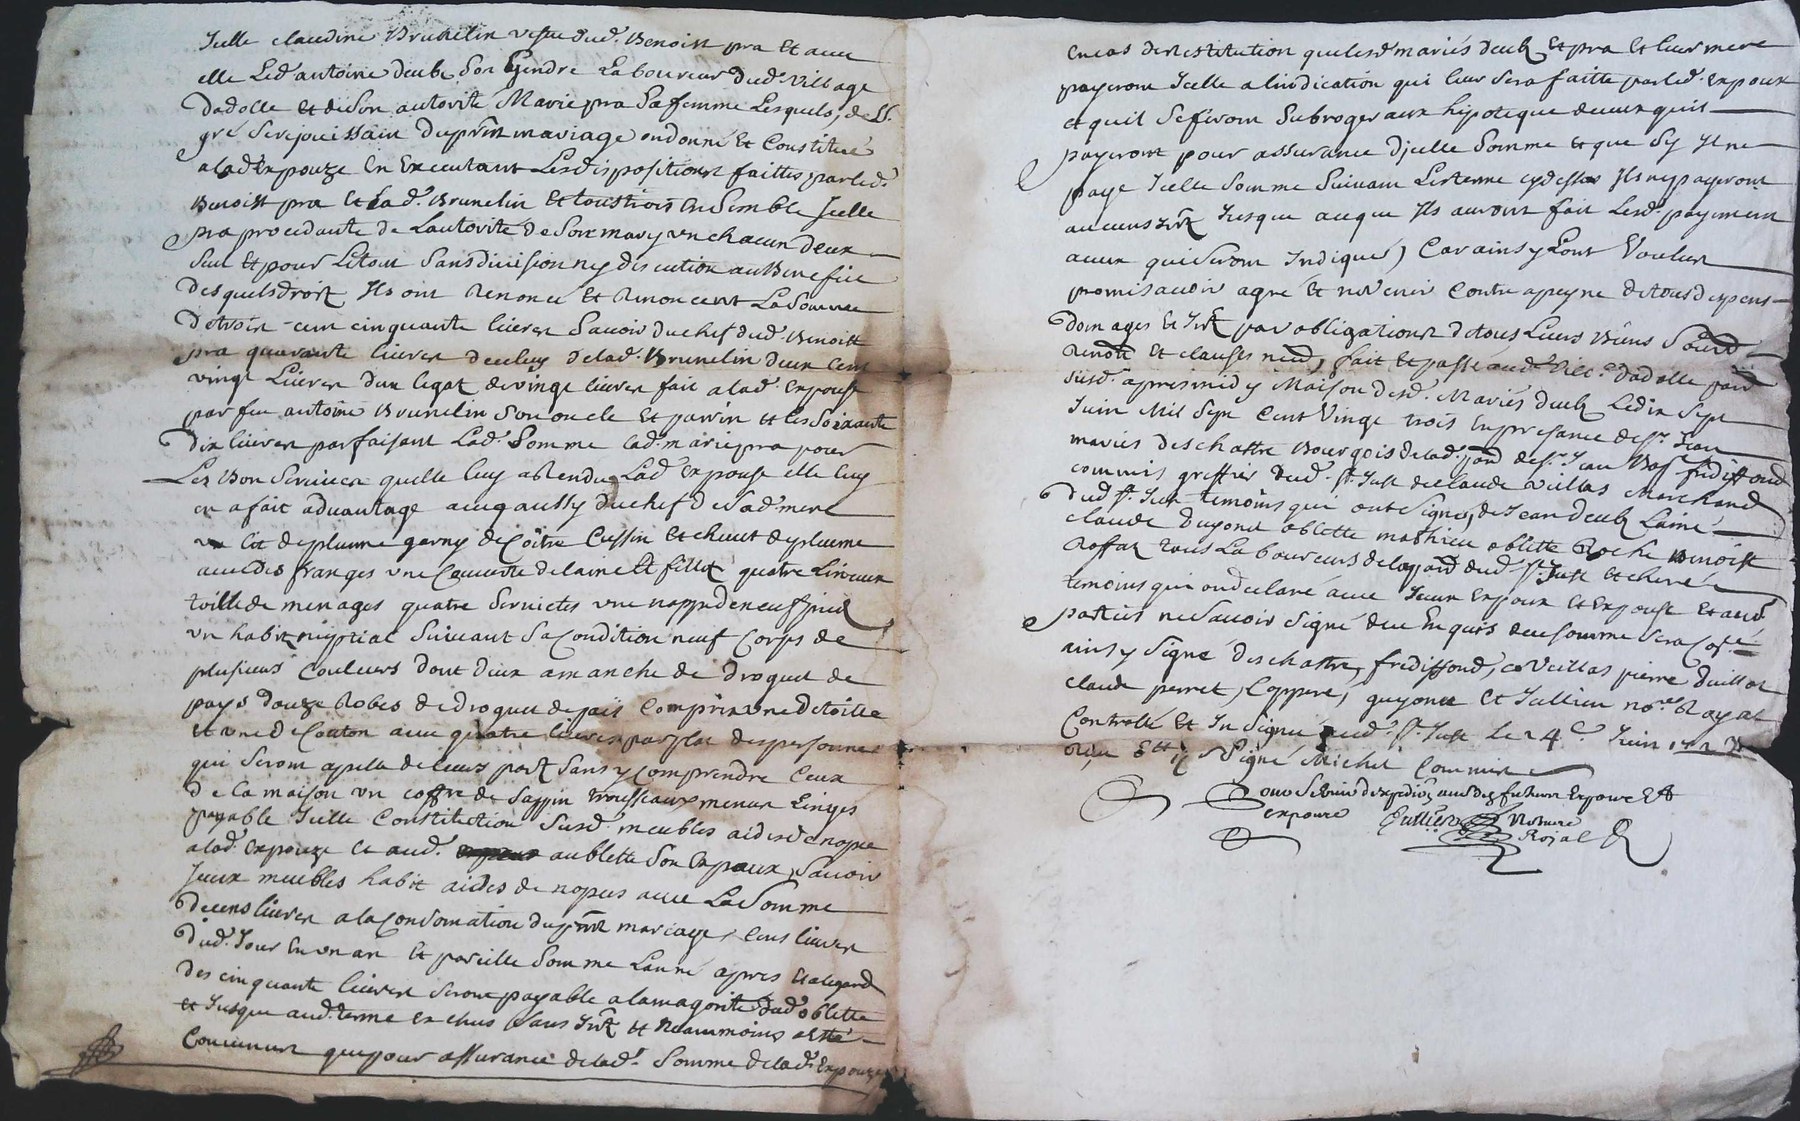 Icelle claudine Brunelin vefve dud. Benoist pra Et avec
elle Led. antoine deub Son Gendre Laboureur dud. village
dadolle et de Son autorité Marie pra Sa femme Lesquels, de Ll.
gré Se rejouissain du pnt mariage on donné Et Constitué
a lad. Expouze En Executant Les dispositions faittes par led.
Benoist pra Et Lad. Brunelin Et tous trois Ensemble Jcelle
pra procedante de Lautorité de Son mary un chacun deux
Seul Et pour Letout Sans division ny discution au Benefice
desquels droit Jls ont Renoncé Et Renoncent La Somme
de trois cent cinquante livres Savoir du chef dud. Benoist
pra quarante livres de celuy de lad. Brunelin deux Cent
vingt Livres dun legat de vingt livres fait a lad. Expouse
par feu antoine Brunelin Son oncle Et parrin et les Soixante
dix livres parfaisant Lad. Somme lad. marie pra pour
Les Bon Services quelle luy a Rendu Lad. Expouse elle luy
en a fait advantage aveq aussy du chef de Sad. mere
un lit de plume garny de Coitre Cussin Et chevet de plume
avec des franges une Couverte de laine Et fillet quatre Linceux
toille de menages quatre Serviettes une nappe de neuf pied
un habit nuptial Suivant Sa Condition neuf Corps de
plusieurs couleurs dont deux a manche de droguet de
pays douze Robes de droguet de pais Compris une de toille
et une de Couton avec quatre livres par plat des personnes
qui Seront apellé de leurs part Sans y comprendre Ceux
de la maison un coffre de Sappin trousseaux menus Linges
payable Jcelle Constitution Susd. meubles aides de nopce
a lad. Expouze Et aud. aublette Son Expoux, Savoir
Jceux meubles habit aides de nopces avec La Somme
de cens livres a la Consomation du pnt mariage, Cens livres
dud. Jour En un an Et pareille Somme Lanné apres Et a legard
des cinquante livres Seront payable a la magorité dad. oblette
et Jusque aud. terme Eschus Sans Jnt. et Neaumoins a Esté
Convenu que pour assurance de lad. Somme de lad. Expouze
En cas de Restitution que lesd. mariés deub Et pra Et leur mere
payeront Jcelle a lindication qui leur Sera faitte par led. Expoux
et quil Se feront Subroger aux hipoteque de ceux quil
payeront pour assurance djcelle Somme et que Sy Jl ne
paye Jcelle Somme Suivant Les terme cydessus Jls ne payeront
aucuns Jnt. Jusque ace que Jls auront fait Lesd. payiment
aceux qui Seront Jndiqué, Car ainsy Lont Voulu
promis avoir agré Et ne venir Contre a peyne de tous depens
domages Et Jnt. par obligations de tous Leurs Biens
Renon. et clauses fait Et passé aud. vill.e dadolle
Susd. apres midy Maison desd. Mariés deub Le dix Sept
Juin Mil Sept Cent Vingt trois En presance de Sr. Jean
maries deschattre Bourgois de lad. de Sr. Jean
commis greffier dud. St. Just de claude villas Marchand
dud. St. Just temoins qui ont Signé, de Jean deub Lainé
claude Duyonet oblette mathieu oblette Roche Benoist
Roffat tous Laboureurs de la dud. St. Just et cheré
temoins qui on declaré avec Jceux Expoux et Expouse Et
parties ne Savoir Signé de ce Enquis de ce Sommé
ainsy Signé deschattre, fredissond, C. Veillas pierre Duillot
claude perret, Coppere, guyonet Et Jullien no.re Royal
Controllé Et Jnsinué aud. St. Just le 24e Juin 1723
Reçu Signé Michel Commis
pour Servir dexpedion aud. futurs Expoux Et
expouze Jullien Notaire
Royal